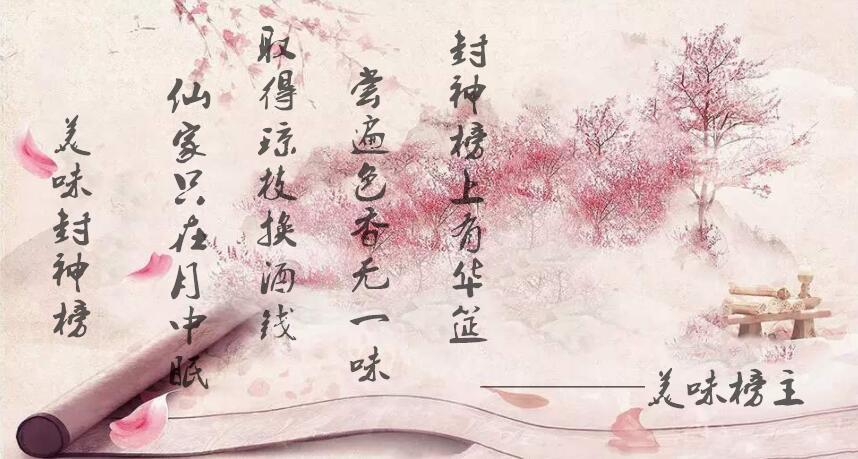 封神榜上有华筵
尝遍色香无一味
取得琼枝换酒钱
仙家只在月中眠
美味封神榜
——美味榜主